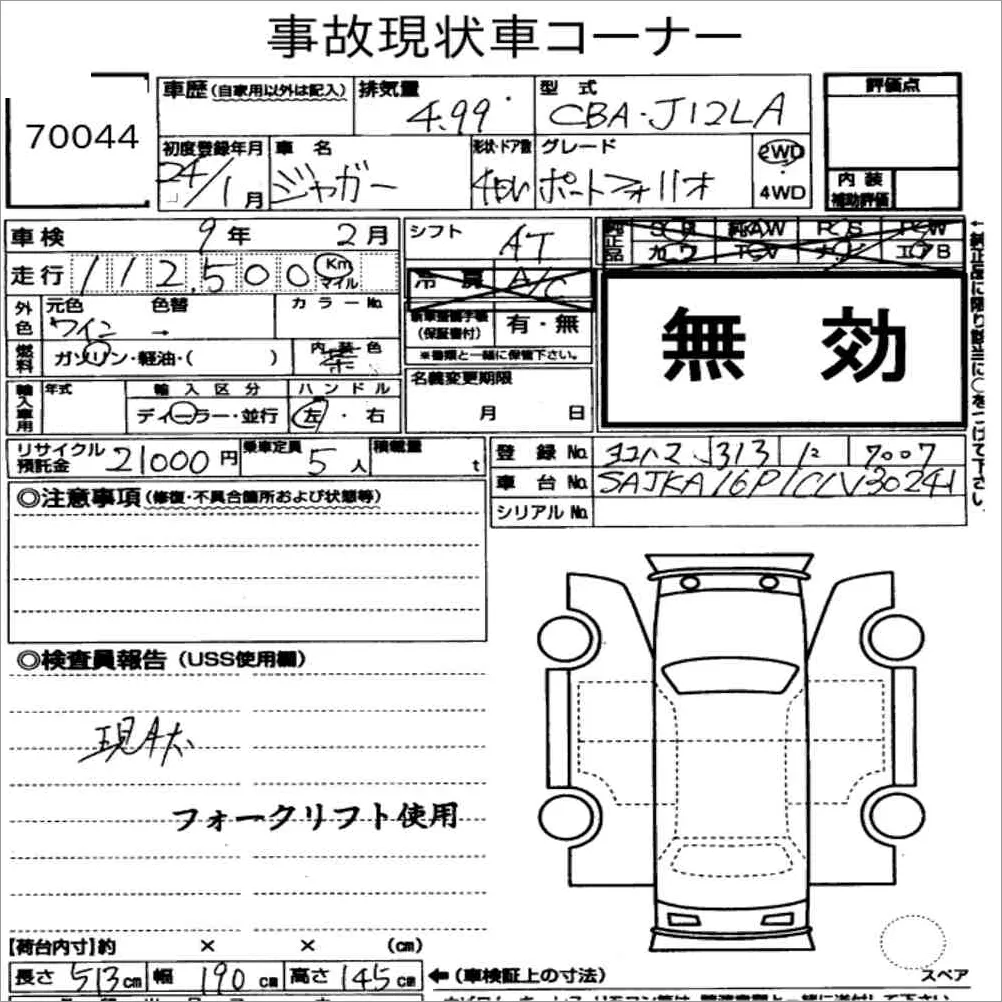 事故現状車コーナー
70044
車歴(自家用以外は記入)
排気量
4.99
型式
CBA-J12LA
評価点
初度登録年月
24/1月
車名
ジャガー
形状・ドア数
グレード
ポートフォリオ
2WD
4WD
内装
補助評価
車検
9年 2月
シフト
AT
純正品
走行
112,500
Km
マイル
冷房
A/C
外色
元色
ワイン
色替
カラーNo.
新車整備手帳
(保証書付)
有・無
※書類と一緒に保管下さい。
無効
燃料
ガソリン・軽油・( )
内装色
茶
輸入車用
年式
輸入区分
ディーラー・並行
ハンドル
左・右
名義変更期限
月 日
リサイクル
預託金
21000円
乗車定員
5人
積載量
t
登録No.
ヨコハマ 313 7007
車台No.
SAJKA16P1CLV30241
シリアルNo.
◎注意事項(修復・不具合箇所および状態等)
◎検査員報告(USS使用欄)
現状
フォークリフト使用
【荷台内寸】約 × × (cm)
長さ 513cm 幅 190cm 高さ 145cm
←(車検証上の寸法)
スペア